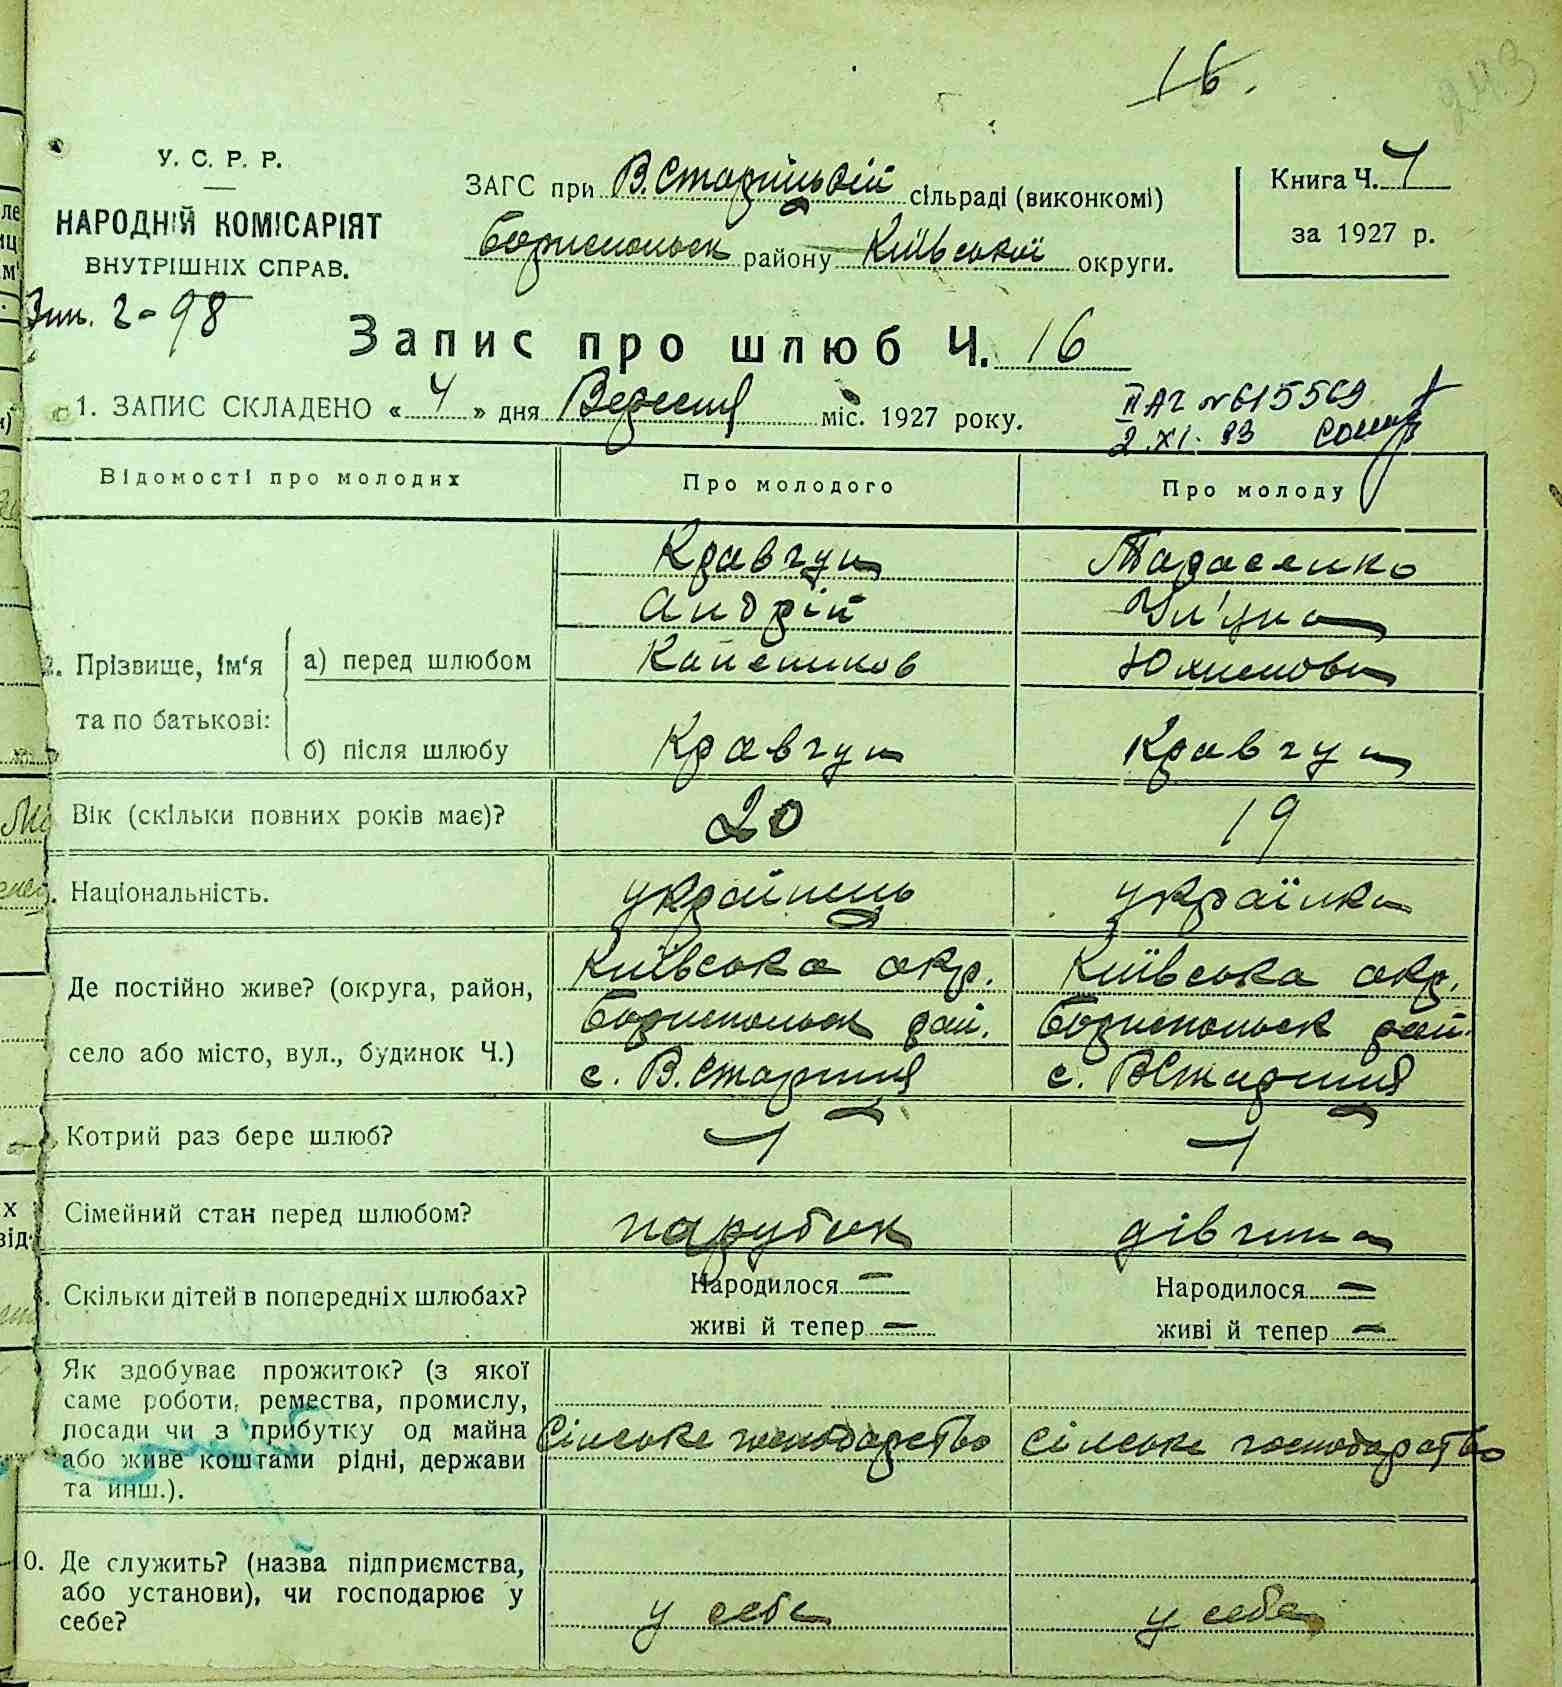 16.
243
У. С. Р. Р.
НАРОДНІЙ КОМІСАРІЯТ
ВНУТРІШНІХ СПРАВ.
ЗАГС при В. Старицькій сільраді (виконкомі)
Бориспольск району Київської округи.
Книга Ч. 1
за 1927 р.
2-98
Запис про шлюб Ч. 16
1. ЗАПИС СКЛАДЕНО « 4 » дня Вересня міс. 1927 року.
ІІ АГ № 615569
2.XI.93
Відомості про молодих Про молодого Про молоду
Кравчун Тарасенко
Андрій Ул'яна
Юхимовна
2. Прізвище, ім'я та по батькові: а) перед шлюбом
б) після шлюбу Кравчун Кравчун
Вік (скільки повних років має)? 20 19
Національність. українець українка
Де постійно живе? (округа, район, село або місто, вул., будинок Ч.)
Київська окр. Київська окр.
Бориспольск рай. Бориспольск рай.
с. В. Стариця с. В Стариця
Котрий раз бере шлюб? 1 1
Сімейний стан перед шлюбом? парубок дівчина
Скільки дітей в попередніх шлюбах? Народилося — Народилося —
живі й тепер — живі й тепер —
Як здобуває прожиток? (з якої
саме роботи, ремества, промислу,
посади чи з прибутку од майна
або живе коштами рідні, держави
та инш.).
Сільське господарство сільське господарство
10. Де служить? (назва підприємства,
або установи), чи господарює у
себе?
у себе у себе